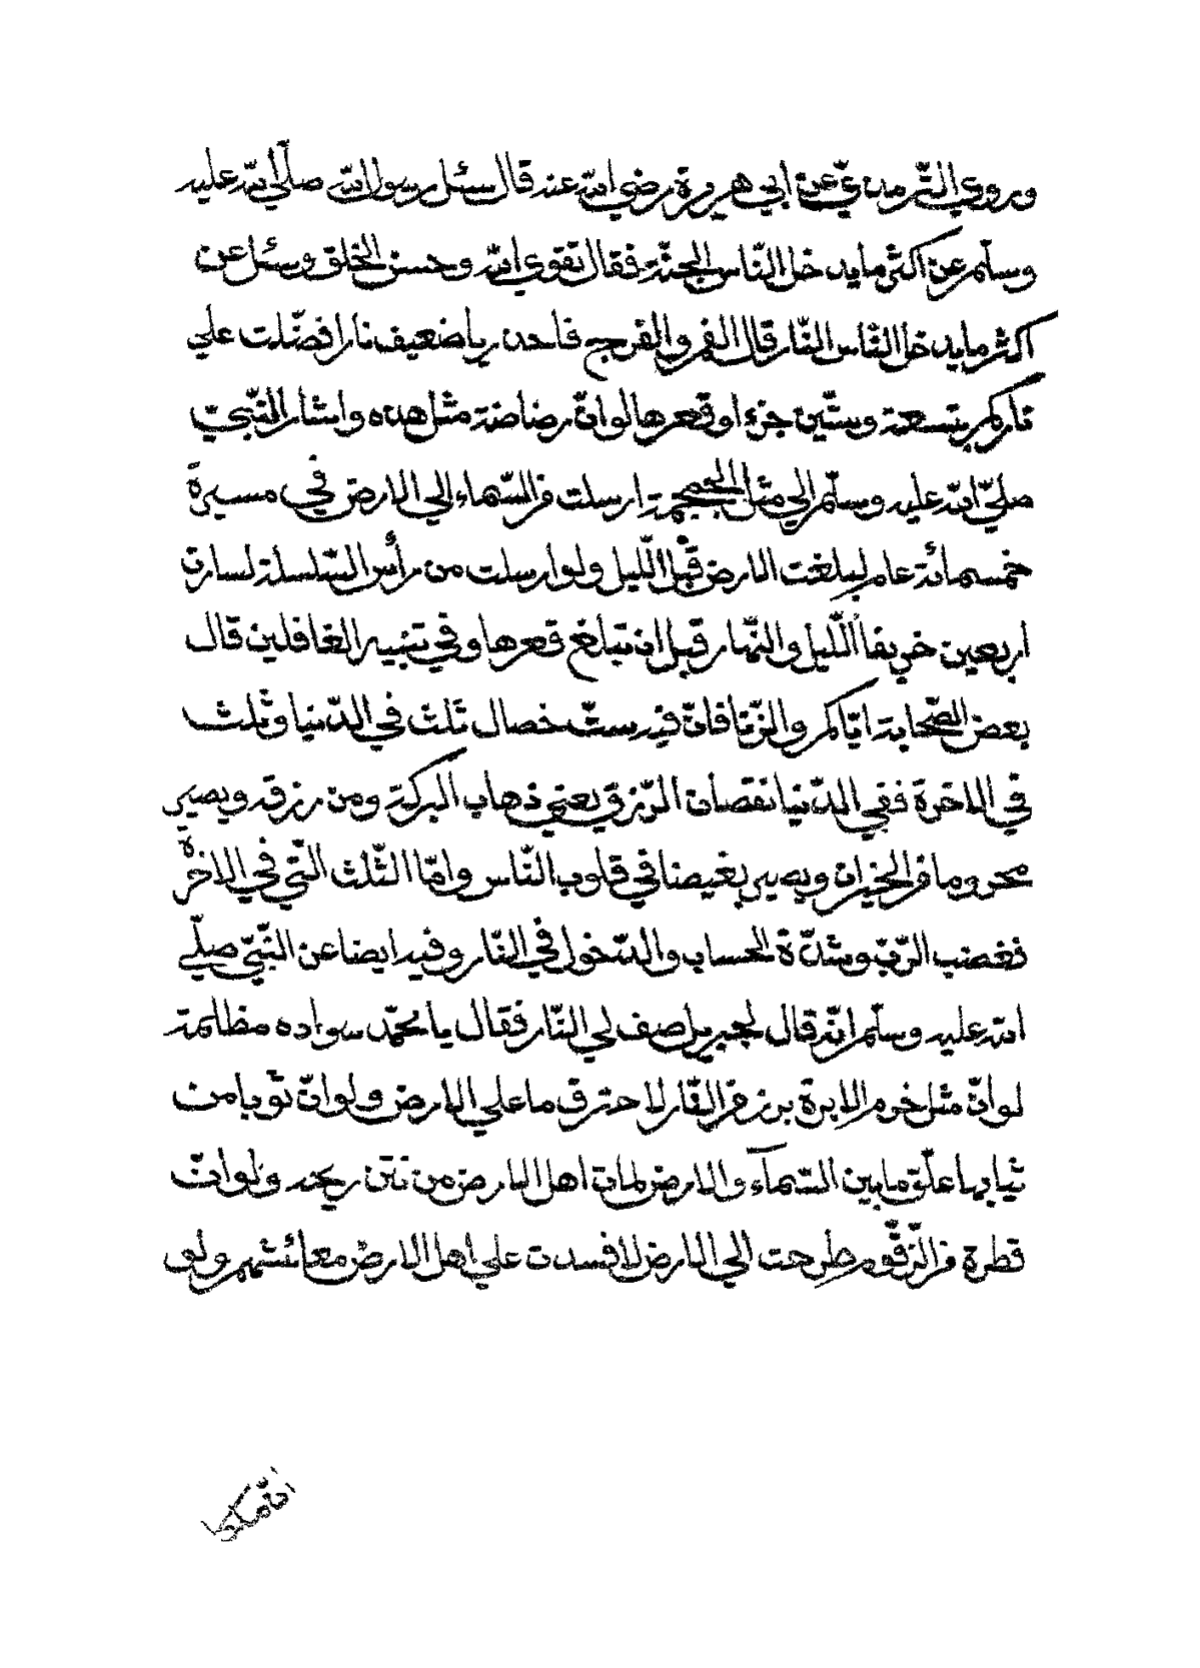 وروي الترمذيّ عن ابي هريرة رضي الله عنه قال سئل رسول الله صلّي الله عليه
وسلّم عن اكثر ما يدخل النّاس الجنّة فقال تقوي الله وحسن الخلق وسئل عن
اكثر ما يدخل النّاس النّار قال الفم والفرج فاحذر يا ضعيف نارا فضّلت علي
ناركم بتسعة وستّين جزء او قعرها لو انّ رضاضة مثل هذه واشار النّبيّ
صلّي الله عليه وسلّم الي مثل الجمجمة ارسلت من السّماء الي الارض في مسيرة
خمسمائة عام لبلغت الارض قبل اللّيل ولو ارسلت من رأس السّلسلة لسارت
اربعين خريفا اللّيل والنّهار قبل ان تبلغ قعرها وفي تنبيه الغافلين قال
بعض الصّحابة ايّاكم والزّنا فانّ فيه ستّ خصال ثلث في الدّنيا وثلث
في الاخرة ففي الدّنيا نقصان الرّزق يعني ذهاب البركة ومن رزقه ويصير
محروما من الخيرات ويصير بغيضا في قلوب النّاس وامّا الثّلث الّتي في الاخرة
فغضب الرّبّ وشدّة الحساب والدّخول في النّار وفيه ايضا عن النّبيّ صلّي
الله عليه وسلّم انّه قال لجبريل صف لي النّار فقال يا محمّد سواده مظلمة
لو انّ مثل خرم الابرة برز من النّار لاحترق ما علي الارض ولو انّ ثوبا من
ثيابها علّق ما بين السّمآء والارض لمات اهل الارض من نتن ريحه ولو انّ
قطرة من الزّقّوم طرحت الي الارض لافسدت علي اهل الارض معائشهم ولو